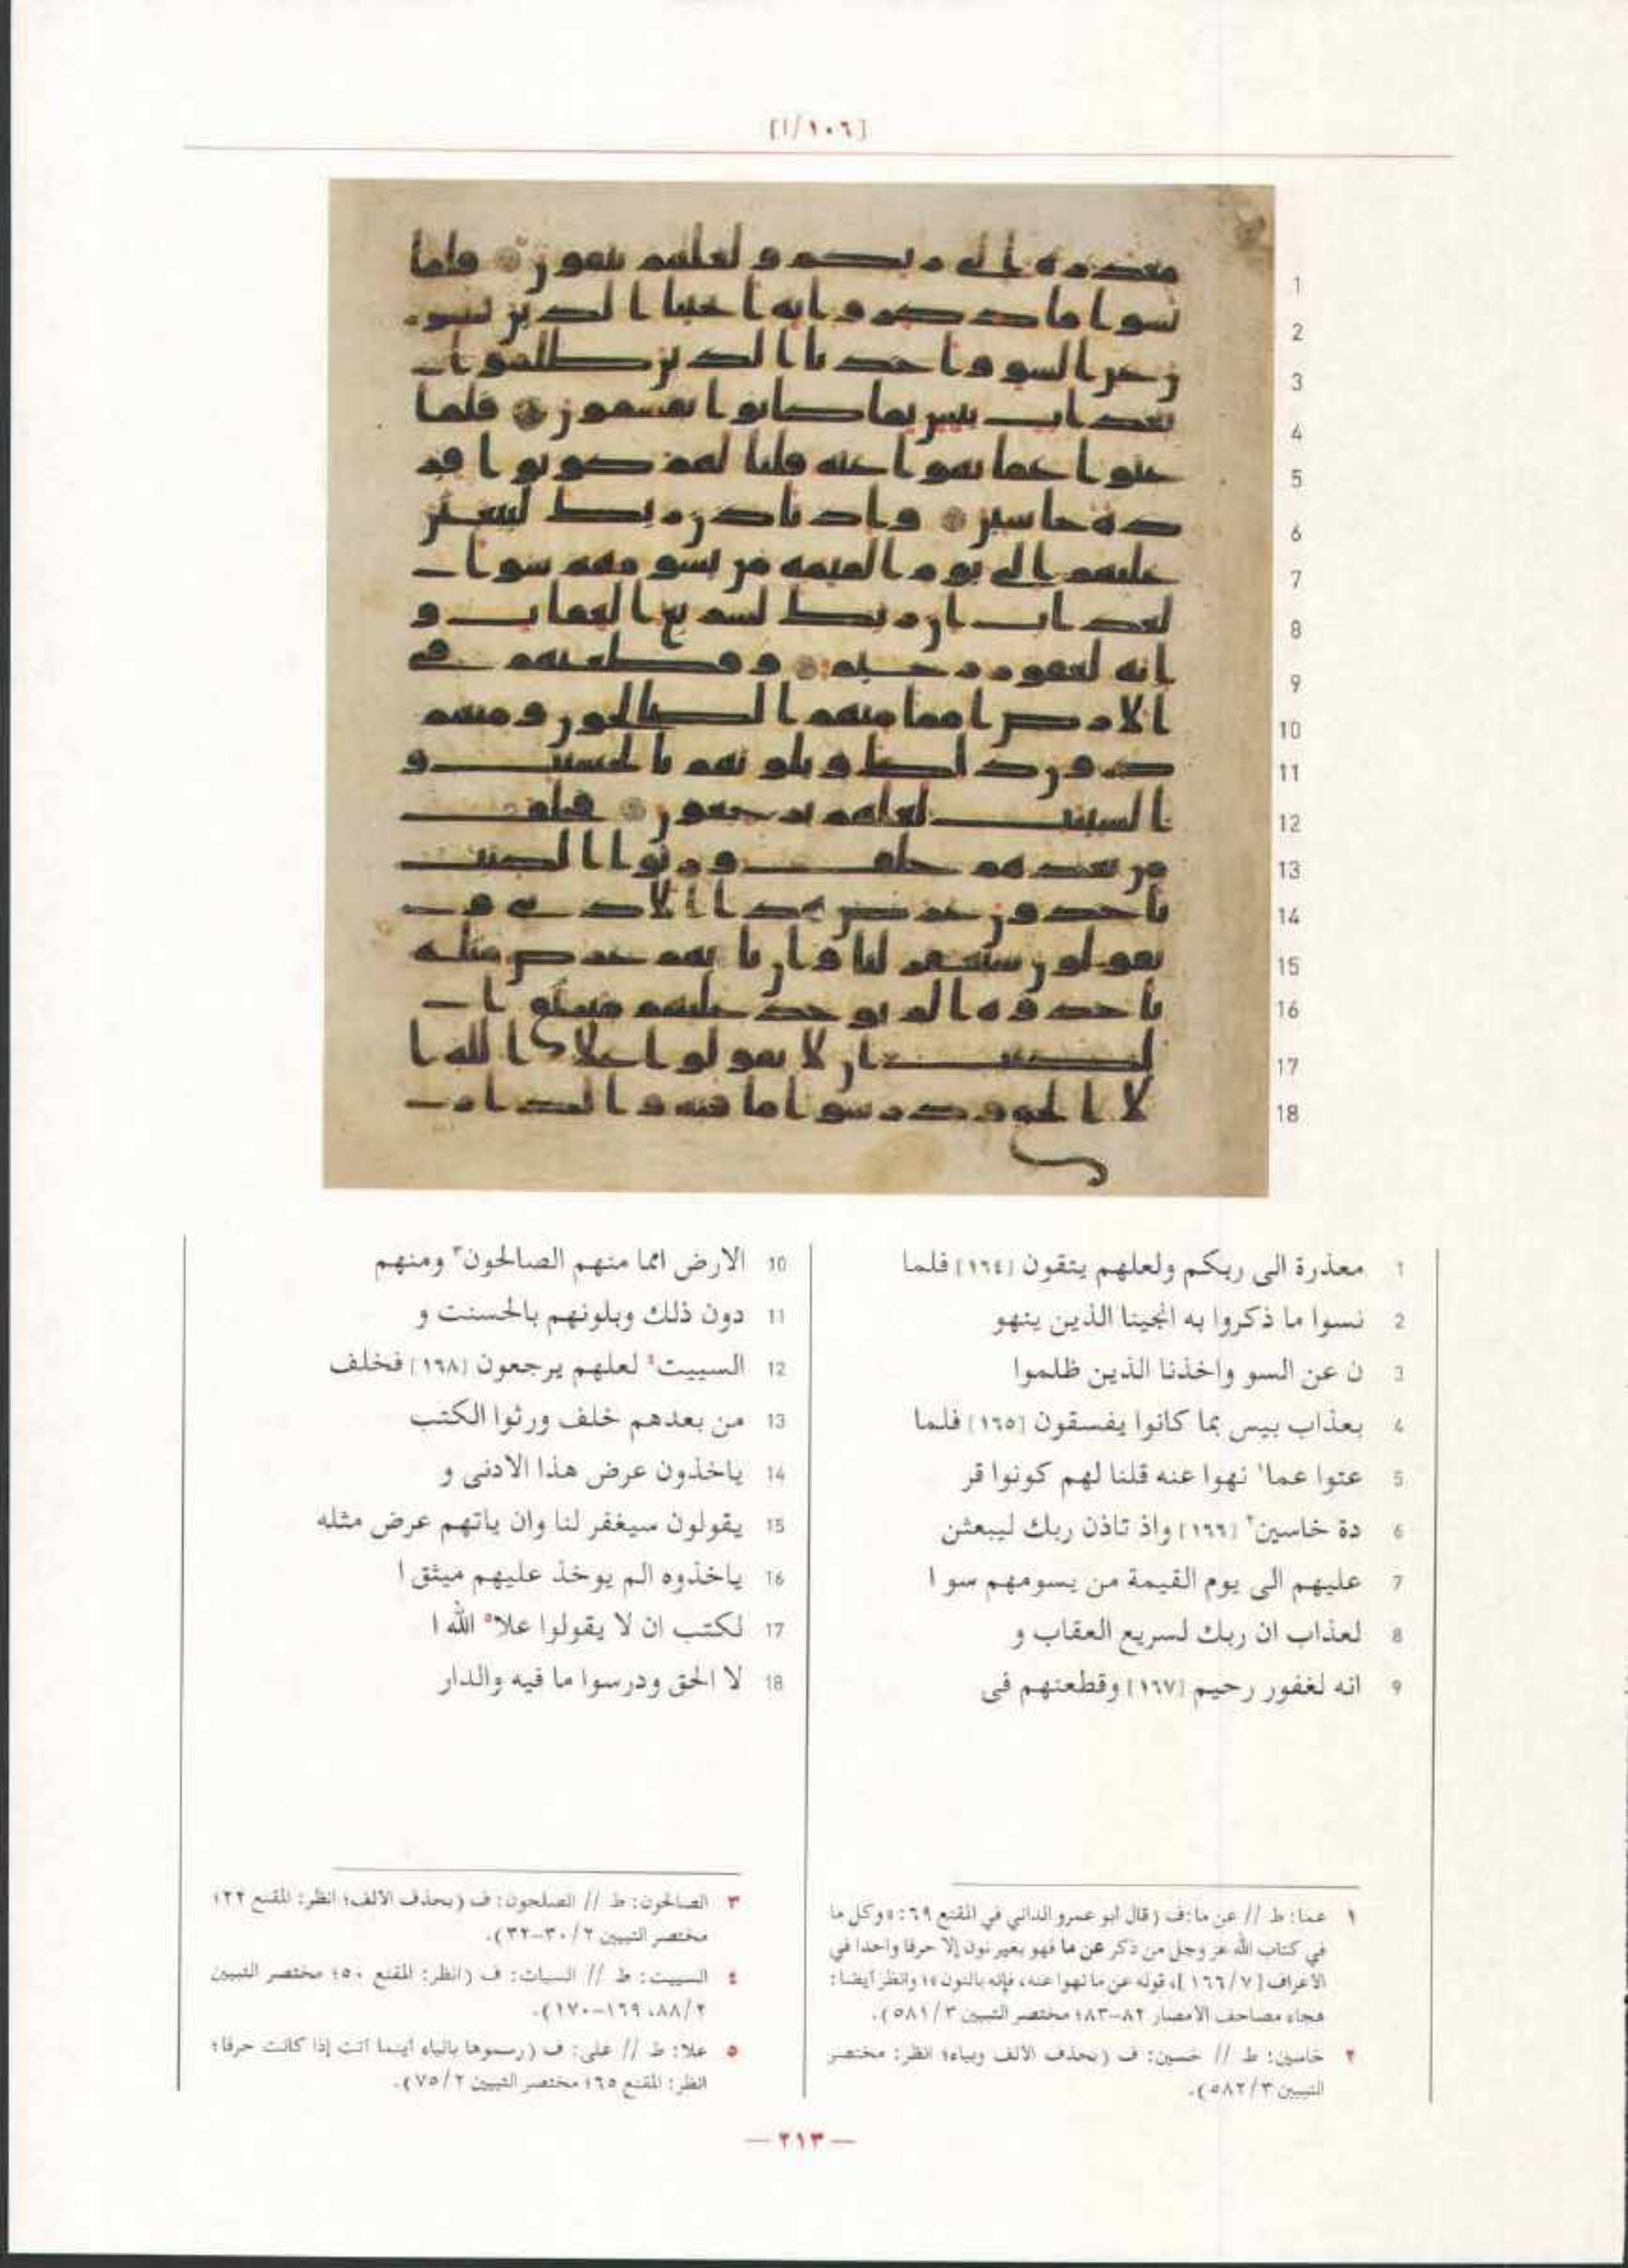 [١٠٦/ا]
1
2
3
4
5
6
7
8
9
10
11
12
13
14
15
16
17
18
1 معذرة الى ربكم ولعلهم يتقون [١٦٤] فلما
2 نسوا ما ذكروا به انجينا الذين ينهو
3 ن عن السو واخذنا الذين ظلموا
4 بعذاب بيس بما كانوا يفسقون [١٦٥] فلما
5 عتوا عما١ نهوا عنه قلنا لهم كونوا قر
6 دة خاسين٢ [١٦٦] واذ تاذن ربك ليبعثن
7 عليهم الى يوم القيمة من يسومهم سو ا
8 لعذاب ان ربك لسريع العقاب و
9 انه لغفور رحيم [١٦٧] وقطعنهم فى
10 الارض امما منهم الصالحون٣ ومنهم
11 دون ذلك وبلونهم بالحسنت و
12 السييت٤ لعلهم يرجعون [١٦٨] فخلف
13 من بعدهم خلف ورثوا الكتب
14 ياخذون عرض هذا الادنى و
15 يقولون سيغفر لنا وان ياتهم عرض مثله
16 ياخذوه الم يوخذ عليهم ميثق ا
17 لكتب ان لا يقولوا علا٥ الله ا
18 لا الحق ودرسوا ما فيه والدار
١ عما: ط // عن ما: ف (قال ابو عمرو الداني في المقنع ٦٩: «وكل ما
في كتاب الله عز وجل من ذكر عن ما فهو بغير نون إلا حرفا واحدا في
الاعراف [٧/ ١٦٦]، قوله عن ما نهوا عنه، فإنه بالنون»؛ وانظر أيضا:
هجاء مصاحف الامصار ٨٢-٨٣؛ مختصر التبيين ٣/ ٥٨١).
٢ خاسين: ط // خسين: ف (بحذف الالف وبياء؛ انظر: مختصر
التبيين ٣/ ٥٨٢).
٣ الصالحون: ط // الصلحون: ف (بحذف الالف؛ انظر: المقنع ٢٢؛
مختصر التبيين ٢/ ٣٠-٣٢).
٤ السييت: ط // السيات: ف (انظر: المقنع ٥٠؛ مختصر التبيين
٢/ ٨٨، ١٦٩-١٧٠).
٥ علا: ط // على: ف (رسموها بالياء أينما أتت إذا كانت حرفا؛
انظر: المقنع ٦٥؛ مختصر التبيين ٢/ ٧٥).
— ٢١٣ —